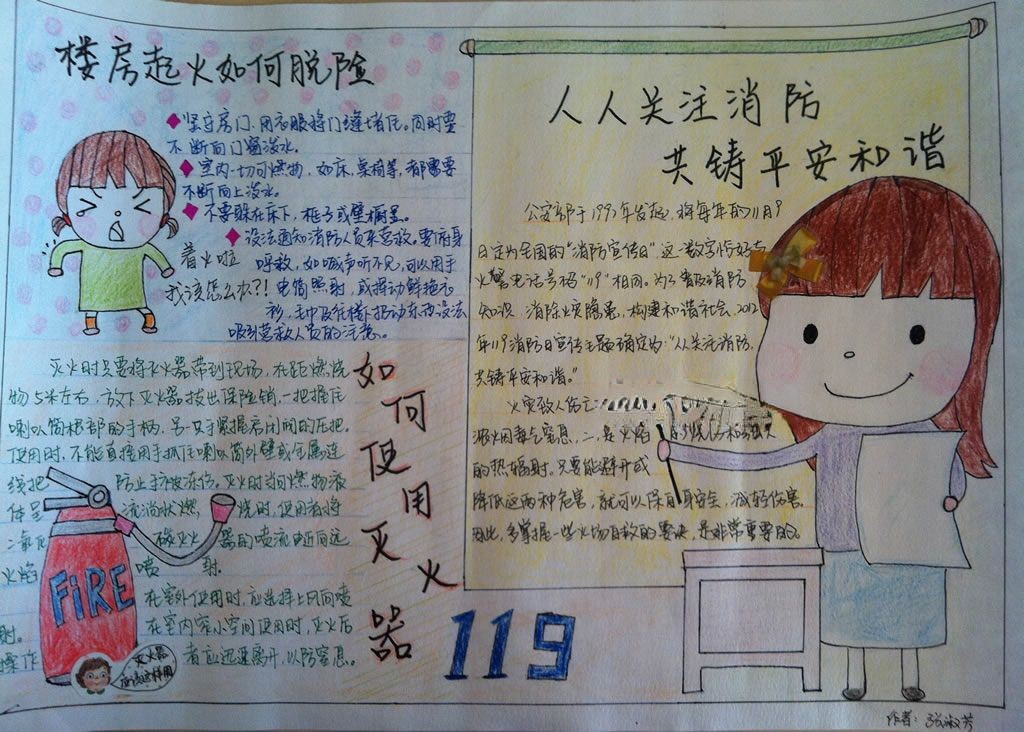 楼房起火如何脱险
坚守房门、用衣服将门缝堵住。同时要
不断向门窗泼水。
室内一切可燃物，如床，桌椅等，都需要
不断向上泼水。
不要躲在床下，柜子或壁橱里。
设法通知消防人员来营救。要俯身
呼救，如喊声听不见，可以用手
电筒照射，或挥动鲜艳衣
衫，毛巾及往楼下扔动东西设法
吸引营救人员的注意。
着火啦
我该怎么办?!
人人关注消防
共铸平安和谐
公安部于1992年发起，将每年的11月9
日定为全国的“消防宣传日”，这一数字恰好与
火警电话号码“119”相同。为了普及消防
知识，消除火灾隐患，构建和谐社会，2012
年119消防日宣传主题确定为：“人人关注消防，
共铸平安和谐。”
火灾致人伤亡
浓烟毒气窒息，二、是火焰
的热辐射。只要能避开或
降低这两种危害，就可以保自身安全，减轻伤害。
因此，多掌握一些火场自救的要诀，是非常重要的。
如何使用灭火器
灭火时只要将灭火器带到现场，在距燃烧
物5米左右，放下灭火器拔出保险销，一把握住
喇叭筒根部的手柄，另一只手紧握启闭阀的压把。
使用时，不能直接用手抓住喇叭筒外壁或金属连
线把 防止手被冻伤。灭火时当可燃物液
体呈 流淌状燃 烧时，使用者将
二氧化 碳灭火 器的喷流由近向远
火焰 喷 射
在室外使用时，应选择上风向喷
射。 在室内窄小空间使用时，灭火后
操作 者应迅速离开，以防窒息。
FiRE
灭火器
应该这样用
119
作者：张淑芳